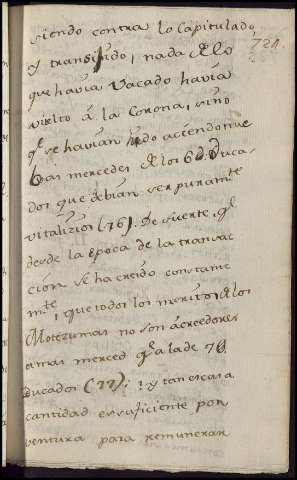 724.
siendo contra lo Capitulado,
y transijido, nada de lo
que havia vacado havia
vuelto á la Corona, sino
q.e se havian ido aciendo nue
bas mercedes de los 6 Duca-
dos que debian ser puramte
vitalizios (76). De suerte, q.e
desde la epoca de la transac
ción se ha creido constante
mte, que todos los meritos de los
Motezumas no son acreedores
a mas merced q.e a la de 7
ducados (77); ¿y tan escasa
cantidad es suficiente por
ventura para remunerar